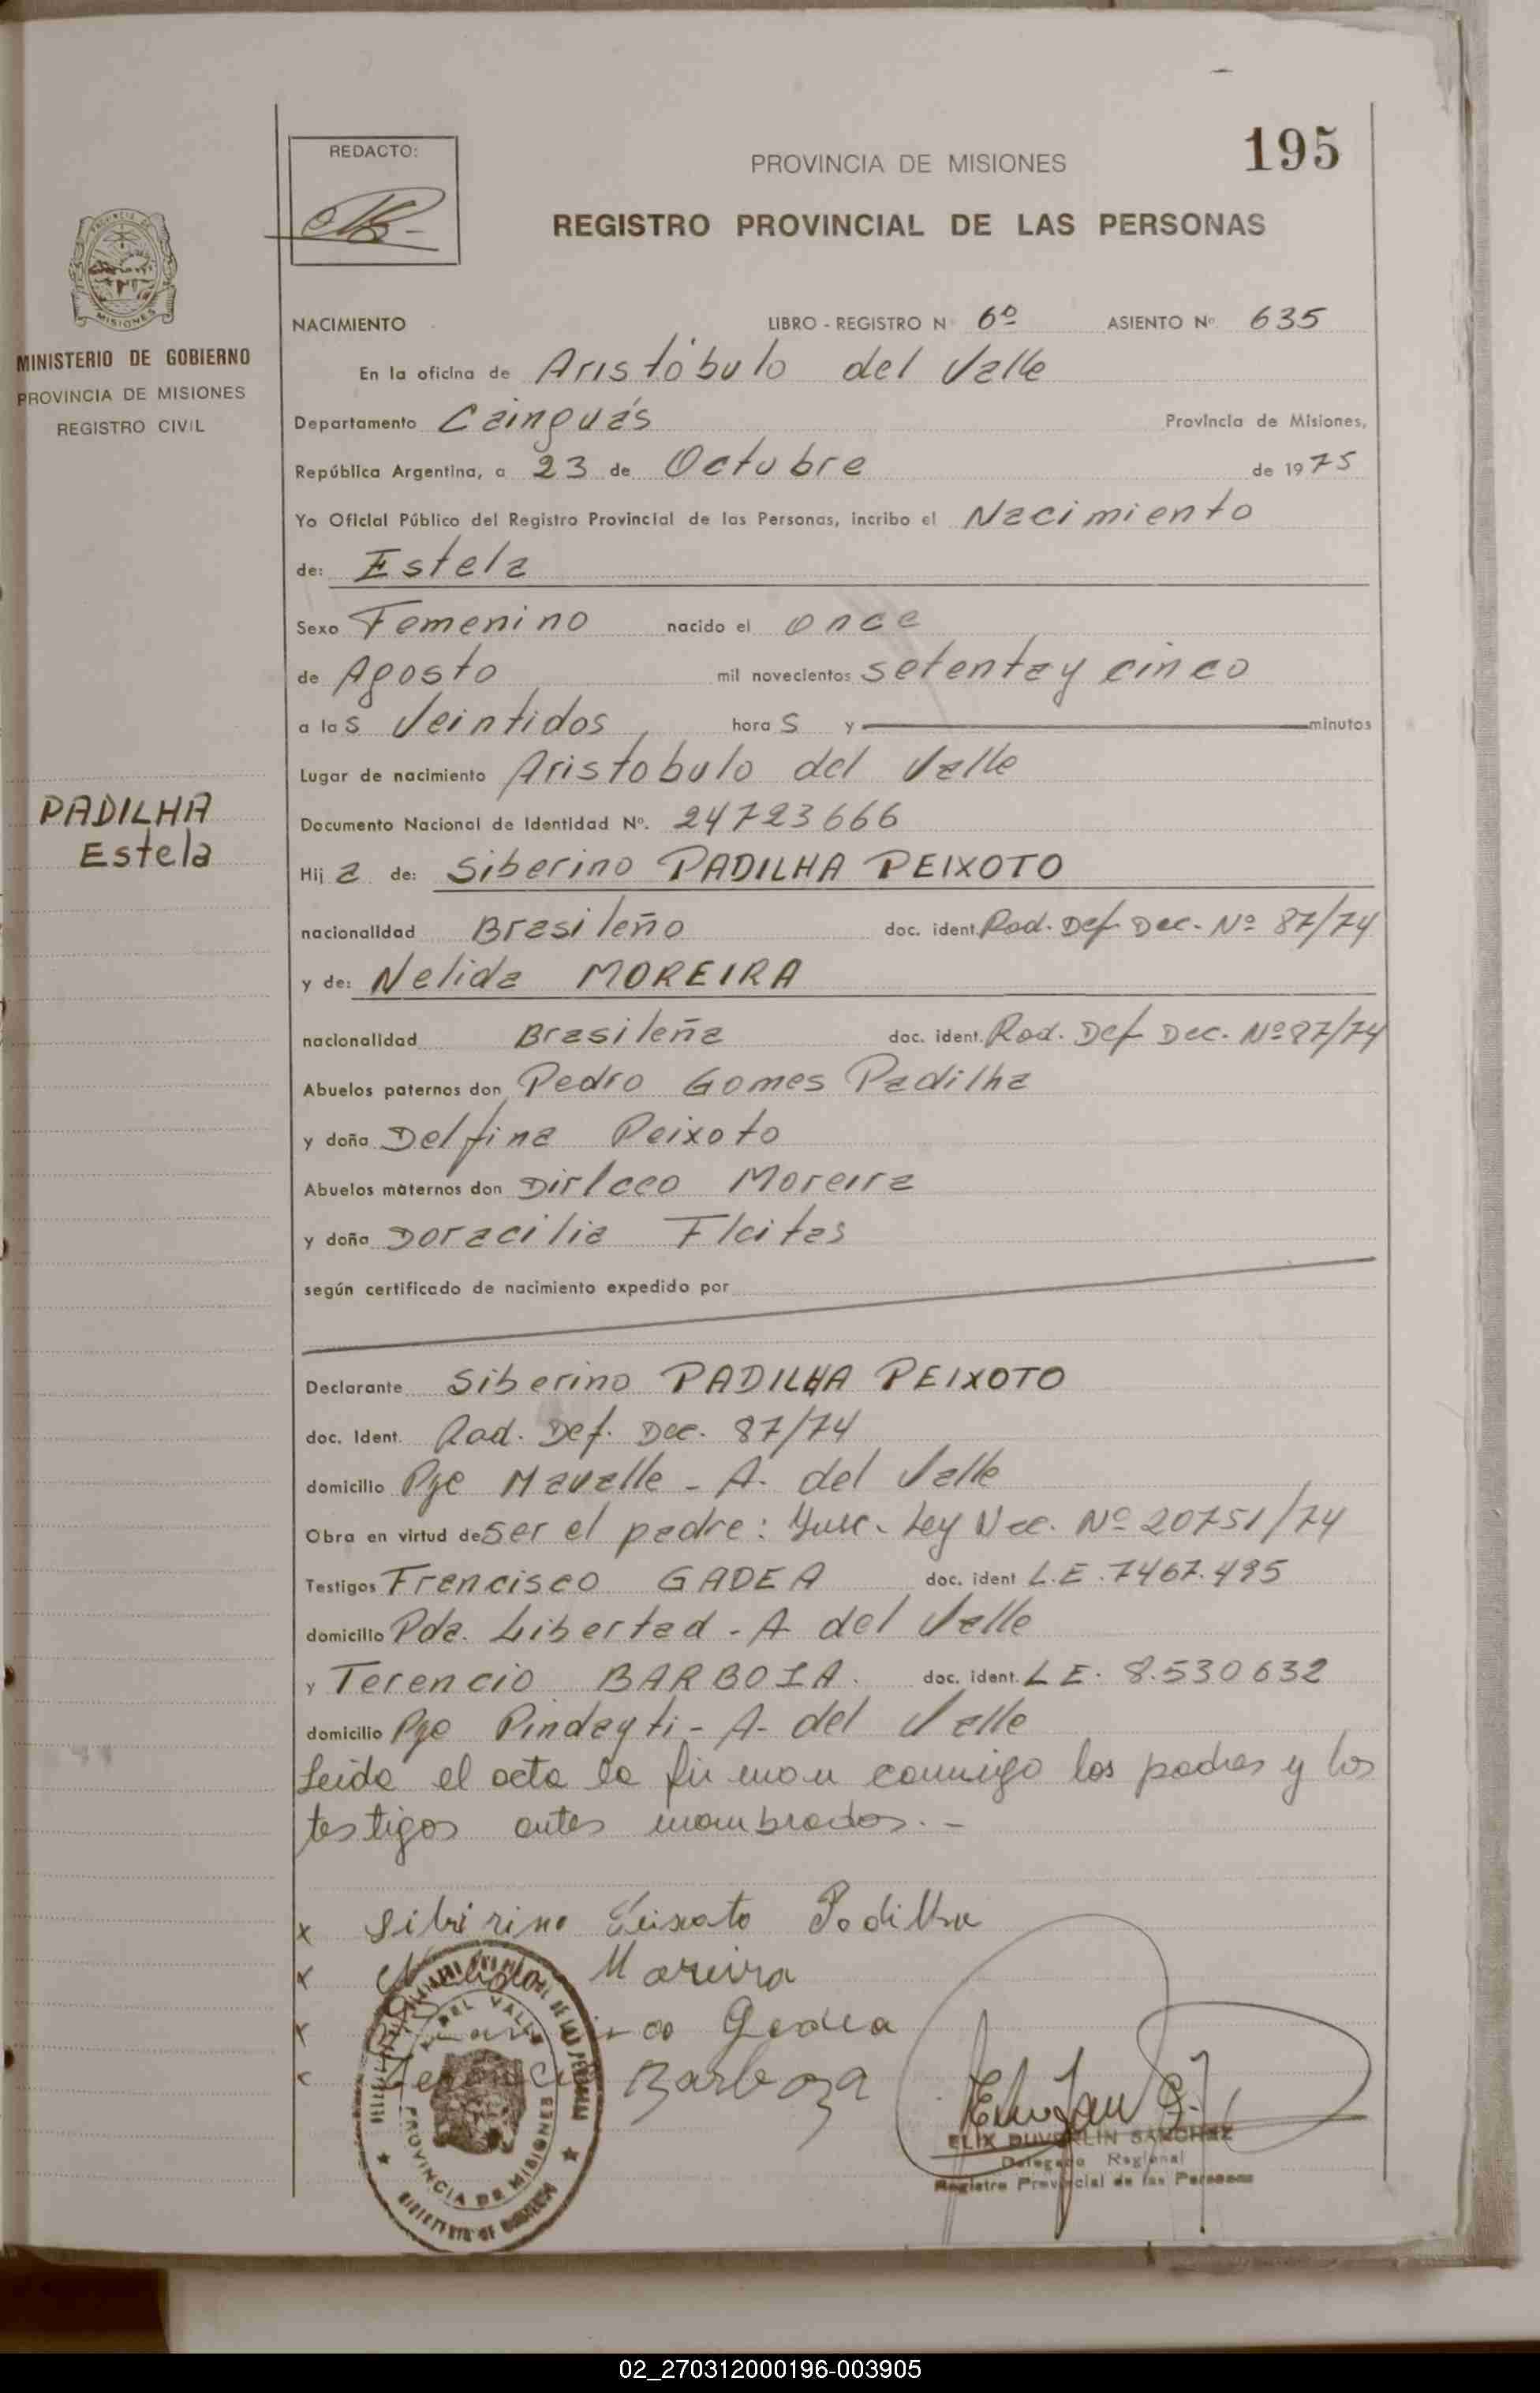 195
REDACTO:
PROVINCIA DE MISIONES
REGISTRO PROVINCIAL DE LAS PERSONAS
MISIONES
MINISTERIO DE GOBIERNO
PROVINCIA DE MISIONES
REGISTRO CIVIL
NACIMIENTO LIBRO - REGISTRO N 6º ASIENTO Nº 635
En la oficina de Aristóbulo del Valle
Departamento Cainguás Provincia de Misiones,
República Argentina, a 23 de Octubre de 1975
Yo Oficial Público del Registro Provincial de las Personas, incribo el Nacimiento
de: Estela
Sexo Femenino nacido el once
de Agosto mil novecientos setenta y cinco
a las Veintidos horas y minutos
Lugar de nacimiento Aristobulo del Valle
PADILHA
Estela
Documento Nacional de Identidad Nº. 24723666
Hija de: Siberino PADILHA PEIXOTO
nacionalidad Brasileño doc. ident. Rad. Def Dec. Nº 87/74
y de: Nelida MOREIRA
nacionalidad Brasileña doc. ident. Rad. Def Dec. Nº 87/74
Abuelos paternos don Pedro Gomes Padilha
y doña Delfina Peixoto
Abuelos maternos don Dirlceo Moreira
y doña Doracilia Fleitas
según certificado de nacimiento expedido por
Declarante Siberino PADILHA PEIXOTO
doc. Ident. Rad. Def. Dec. 87/74
domicilio Pje Mavalle - A. del Valle
Obra en virtud de ser el padre: Insc. Ley Nac. Nº 20751/74
Testigos Francisco GADEA doc. ident L.E. 7467.495
domicilio Pda. Libertad - A del Valle
y Terencio BARBOZA. doc. ident. L E. 8.530632
domicilio Pje Pindayti - A. del Valle
Leida el acta la firman conmigo los padres y los
testigos antes nombrados. -
x Sibirino Peixoto Padilha
x Nelida Moreira
x Gadea
Barboza
DEL VALLE
PROVINCIA DE MISIONES
ELIX DUVERLIN SANCHEZ
Delegado Regional
Registro Provincial de las Personas
02_270312000196-003905